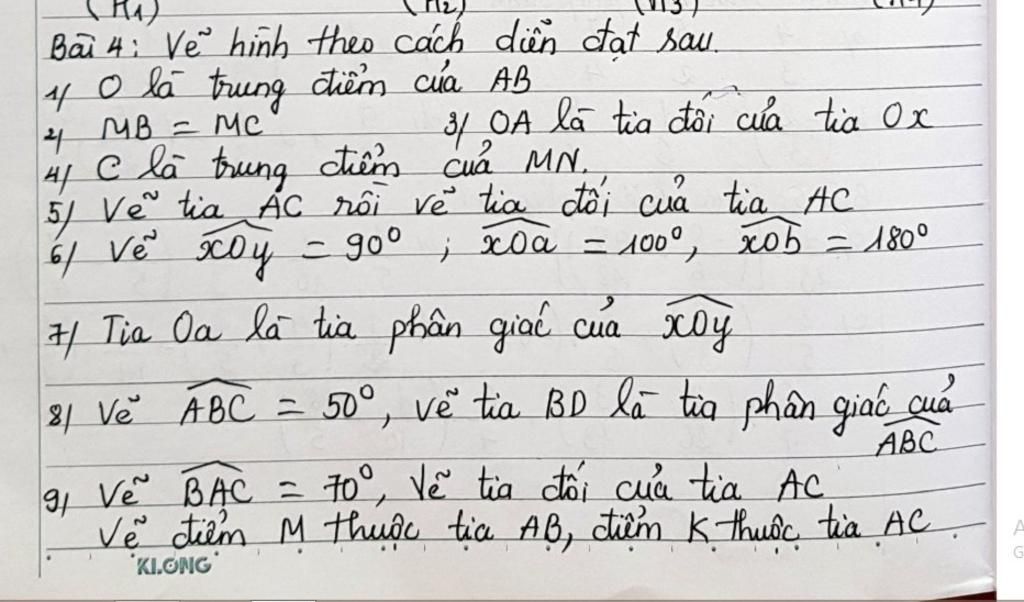 (H1) (H2) (H3)
Bài 4: Vẽ hình theo cách diễn đạt sau.
1/ O là trung điểm của AB
2/ MB = MC 3/ OA là tia đối của tia Ox
4/ C là trung điểm của MN.
5/ Vẽ tia AC rồi vẽ tia đối của tia AC
6/ Vẽ xOy = 90° ; xOa = 100°, xOb = 180°
7/ Tia Oa là tia phân giác của xOy
8/ Vẽ ABC = 50°, vẽ tia BD là tia phân giác của
ABC
9/ Vẽ BAC = 70°, Vẽ tia đối của tia AC
Vẽ điểm M thuộc tia AB, điểm K thuộc tia AC
KLONG